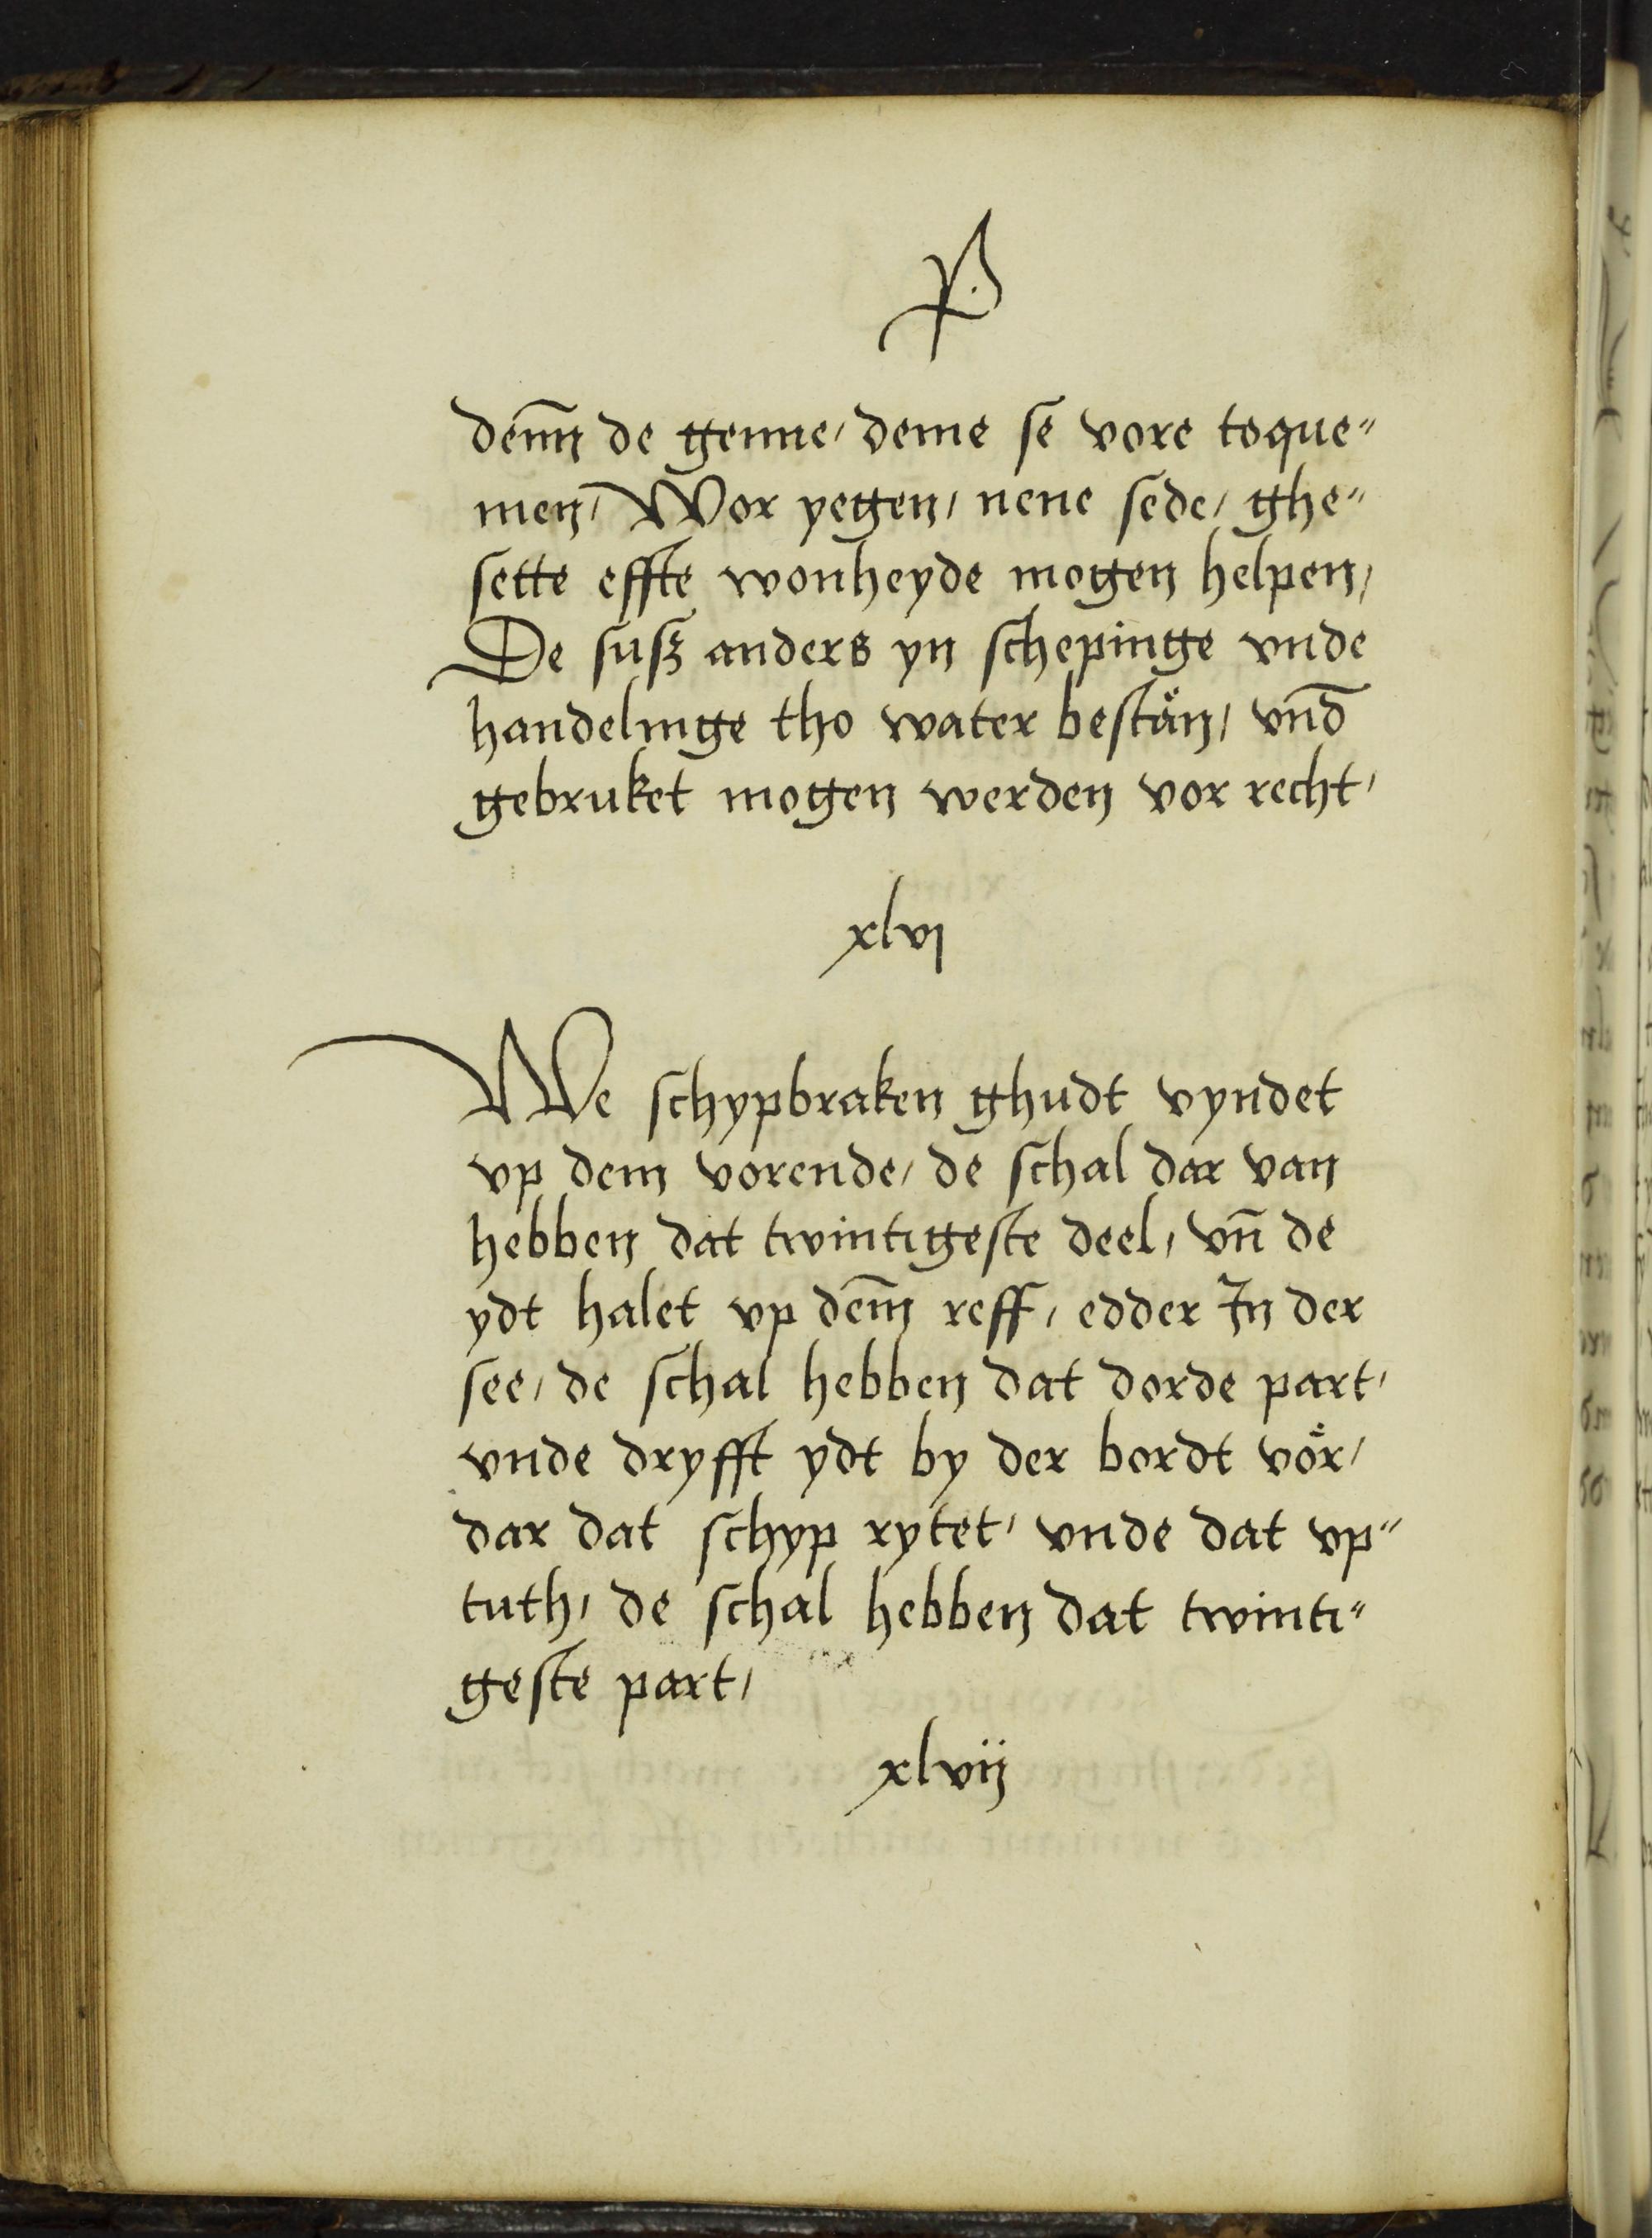 P
dem̄n de genne/ deme se vore toque-
men/ Wor yegen/ nene sede/ ghe-
sette effte wonheyde mogen helpen/
De susz anders yn schepinge vnde
handelinge tho water bestån/ vnd̄
gebruket mogen werden vor recht/
xlvi
We schypbraken ghudt vyndet
vp dem vorende/ de schal dar van
hebben dat twintigeste deel/ vn̄ de
ydt halet vp dem̄ reff/ edder In der
see/ de schal hebben dat dorde part/
vnde dryfft ydt by der bordt vöer/
dar dat schyp rytet/ vnde dat vp-
tuth/ de schal hebben dat twinti-
geste part/
xlvij